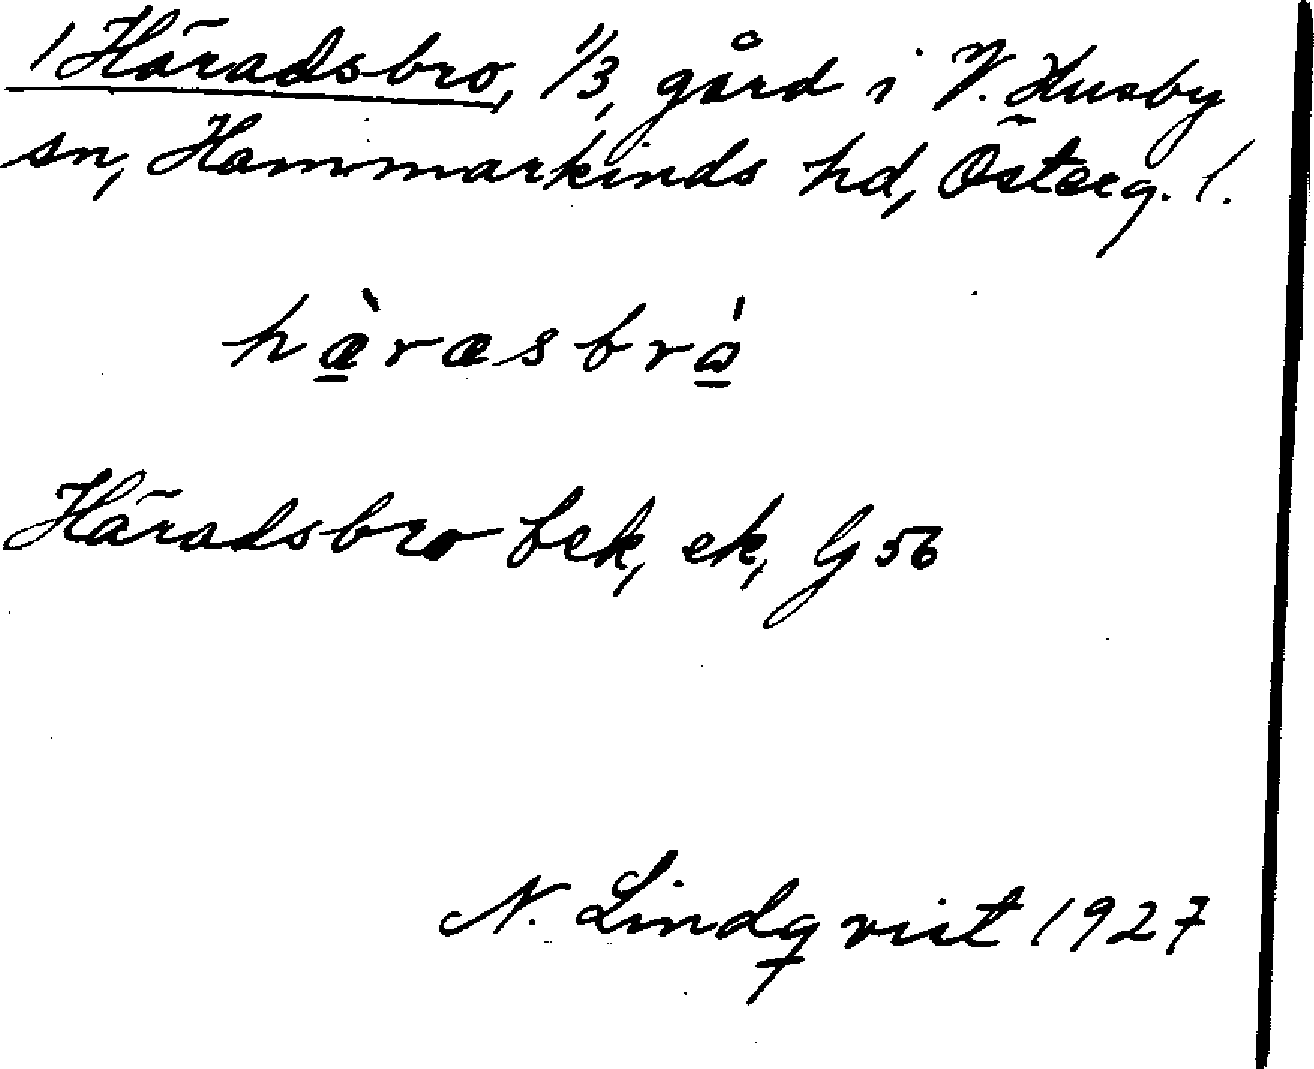 / Häradsbro, 1/3, gård i V. Husby
sn, Hammarkinds hd, Österg. l.
hæ̀ræsbrɷ́
Häradsbro bek, ek, G 56
N. Lindqvist 1927